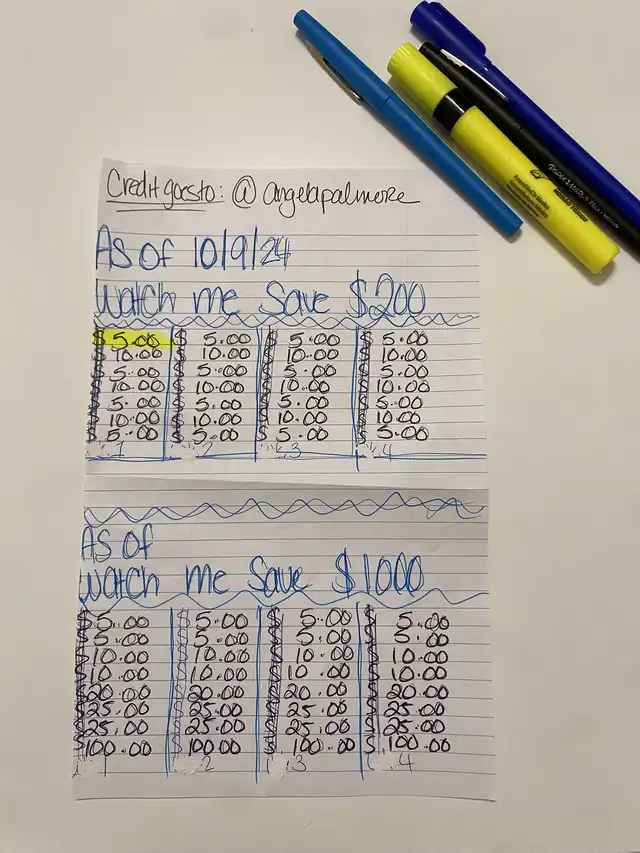 Credit goes to: @angelapalmore
As of 10/9/24
Watch me Save $200
$ 5.00 $ 5.00 $ 5.00 $ 5.00
$ 10.00 $ 10.00 $ 10.00 $ 10.00
$ 5.00 $ 5.00 $ 5.00 $ 5.00
$ 10.00 $ 10.00 $ 10.00 $ 10.00
$ 5.00 $ 5.00 $ 5.00 $ 5.00
$ 10.00 $ 10.00 $ 10.00 $ 10.00
$ 5.00 $ 5.00 $ 5.00 $ 5.00
1 2 3 4
As of
Watch me Save $1000
$5.00 $ 5.00 $ 5.00 $ 5.00
$5.00 $ 5.00 $ 5.00 $ 5.00
$10.00 $ 10.00 $ 10.00 $ 10.00
$10.00 $ 10.00 $ 10.00 $ 10.00
$20.00 $ 20.00 $ 20.00 $ 20.00
$25.00 $ 25.00 $ 25.00 $ 25.00
$25.00 $ 25.00 $ 25.00 $ 25.00
$100.00 $ 100.00 $ 100.00 $ 100.00
2 3 4